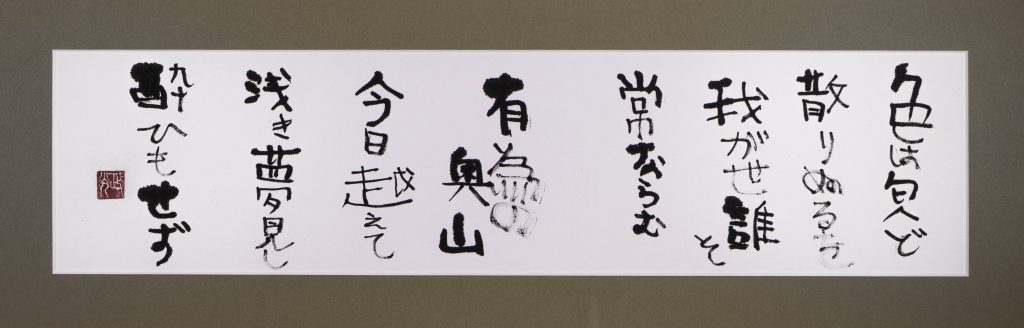 色は匂へど
散りぬるを
我が世誰そ
常ならむ
有為の
奥山
今日越えて
浅き夢見し
酔ひもせず